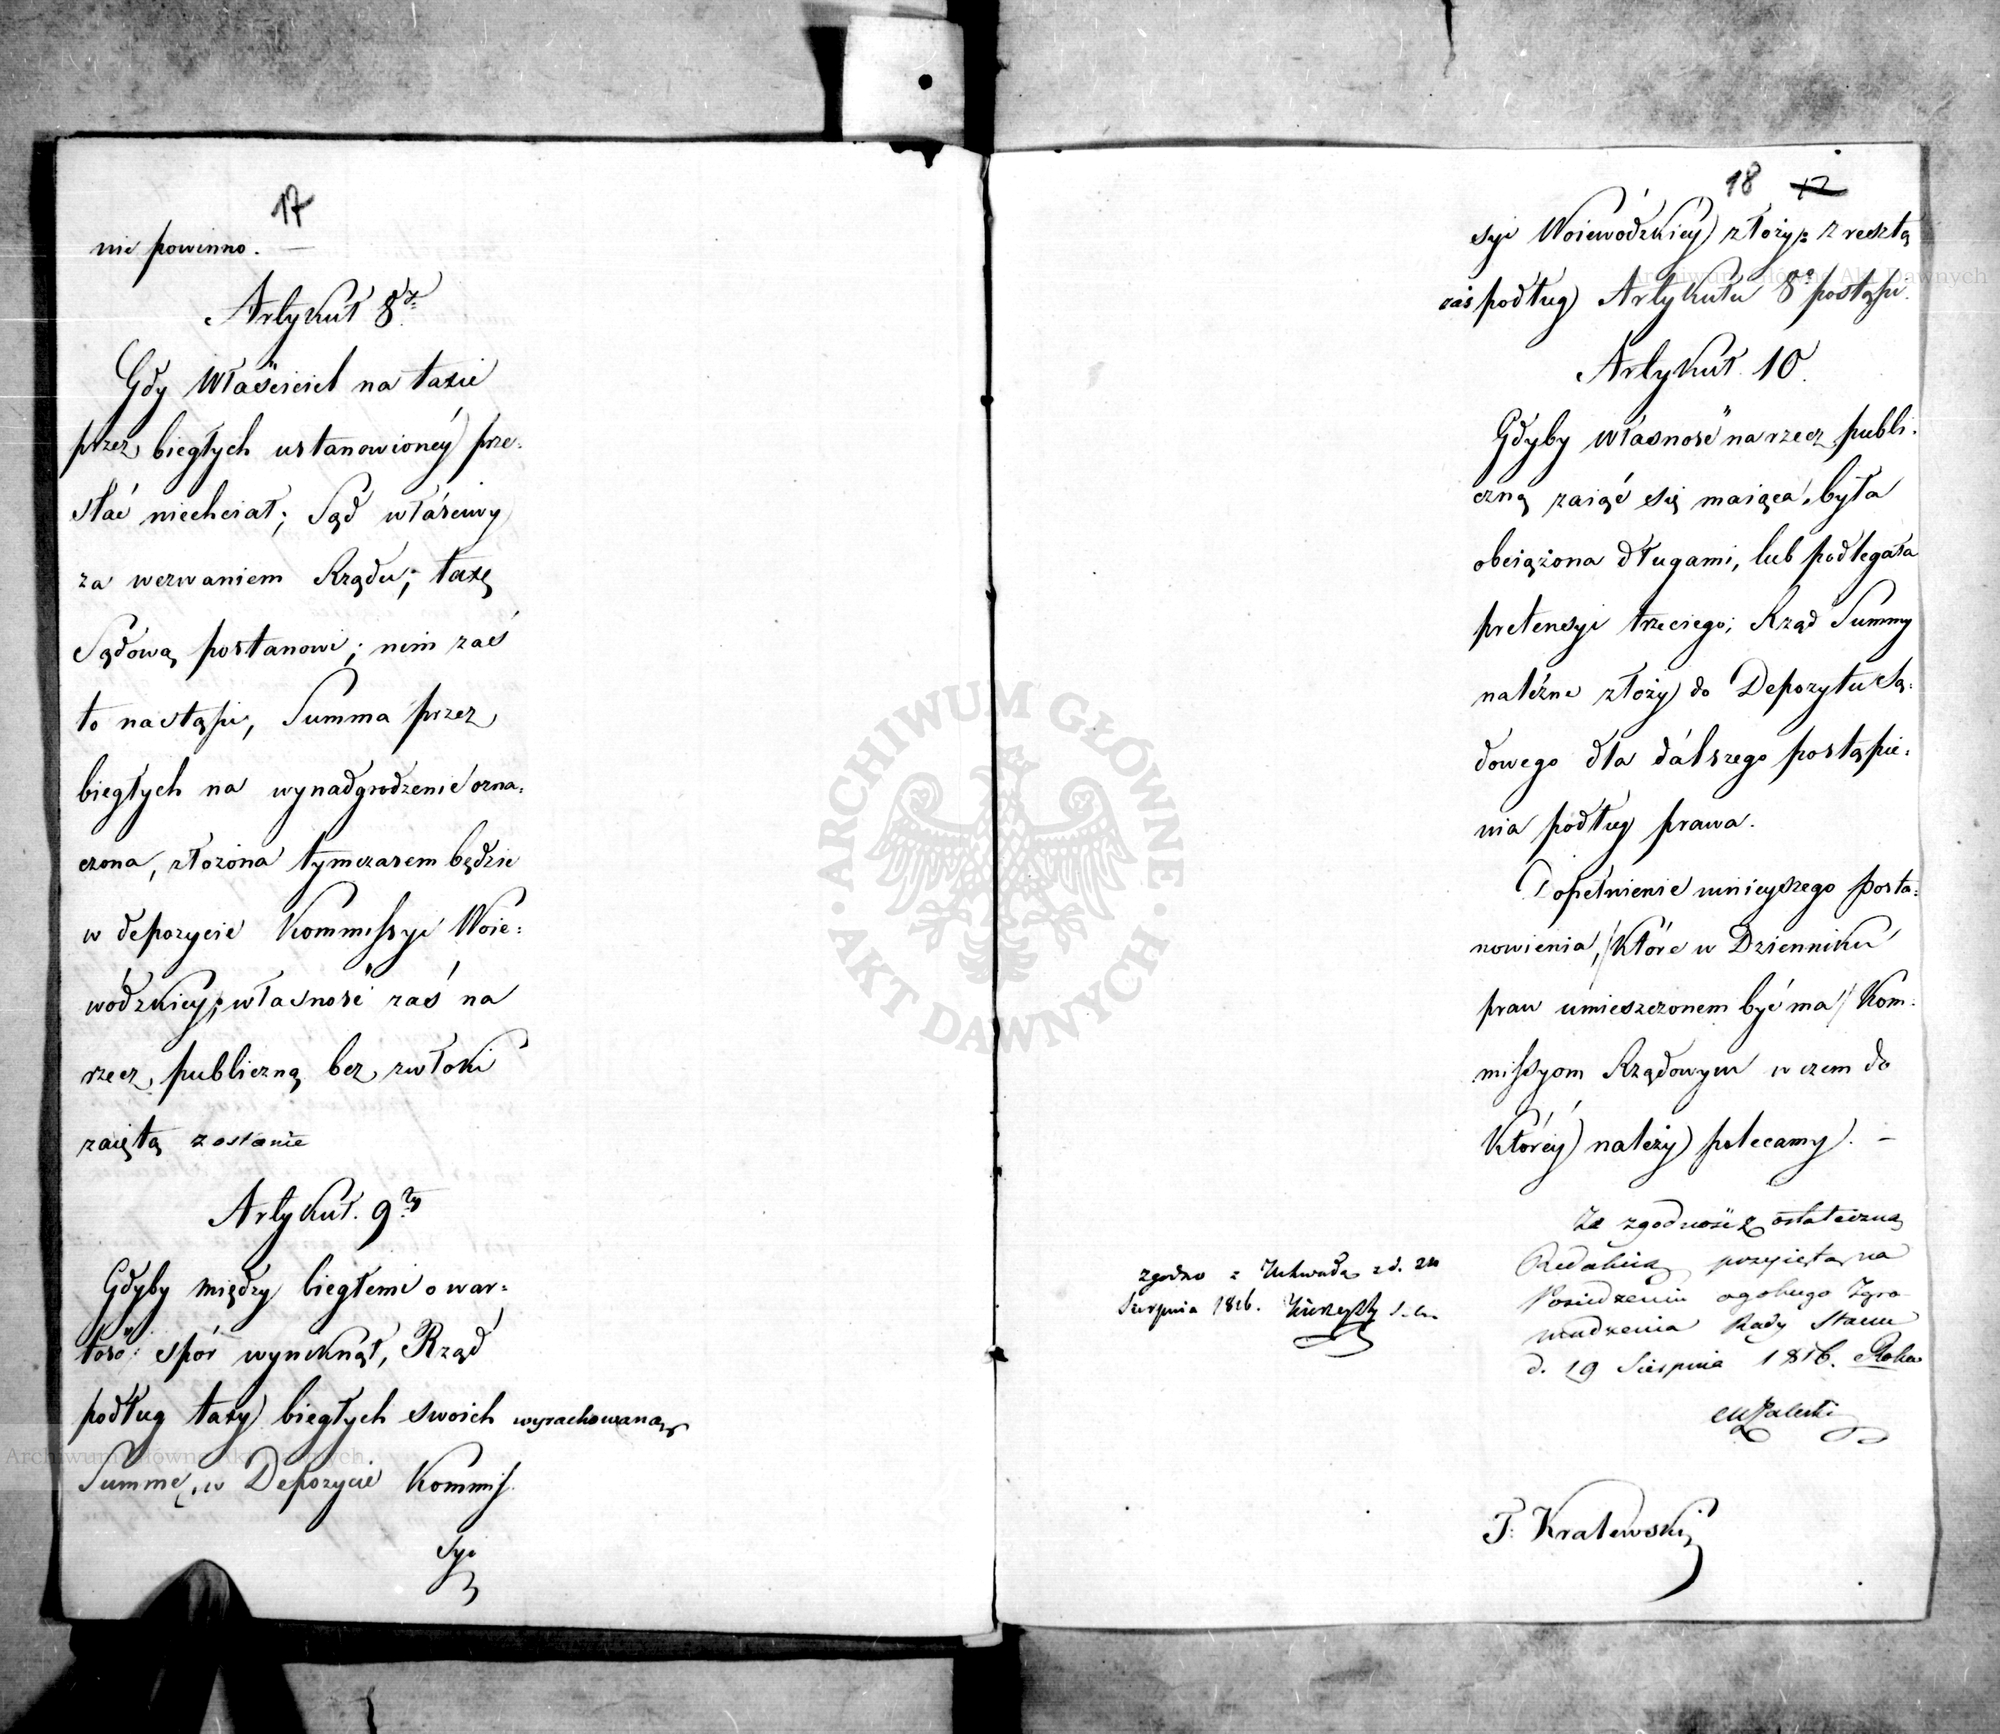 17
nie powinno. —
Artykuł 8y
Gdy Właściciel na taxie
przez biegłych ustanowionéy prze-
stać niechciał; Sąd właściwy
za wezwaniem Rządu; taxę
Sądową postanowi; nim zaś
to nastąpi, Summa przez
biegłych na wynadgrodzenie ozna-
czona, złożona tymczasem będzie
w depozycie Kommissyi Woie-
wódzkiey; własność zaś na
rzecz publiczną bez zwłoki
zaiętą zostanie
Artykuł. 9ty
Gdyby między biegłemi o war-
tość spór wyniknął, Rząd
podług taxy biegłych swoich wyrachowaną
Summę, w Depozycie Kommis-
syi
18 17
syi Woiewódzkiéy złoży; z resztą
zaś podług Artykułu 8o postąpi.
Artykuł. 10.
Gdyby własność na rzecz publi-
czną zaiąć się maiąca, była
obciążona długami, lub podlegała
pretensyi trzeciego; Rząd Summy
należne złoży do Depozytu Są-
dowego dla dálszego postąpie-
nia podług prawa.
Dopełnienie ninieyszego posta-
nowienia, /które w Dzienniku
praw umieszczonem być ma/ Kom-
missyom Rządowym w czem do
któréy należy polecamy. —
Za zgodność z ostateczną
Redakcią przyiętą na
Posiedzeniu ogólnego Zgro-
madzenia Rady Stanu
d. 19 Sierpnia 1816. Roku
zgodno z Uchwałą z d. 24
Sierpnia 1816.
MZaleski
T. Kralewski
ARCHIWUM GŁÓWNE
AKT DAWNYCH
Archiwum Główne Akt Dawnych
Archiwum Główne Akt Dawnych